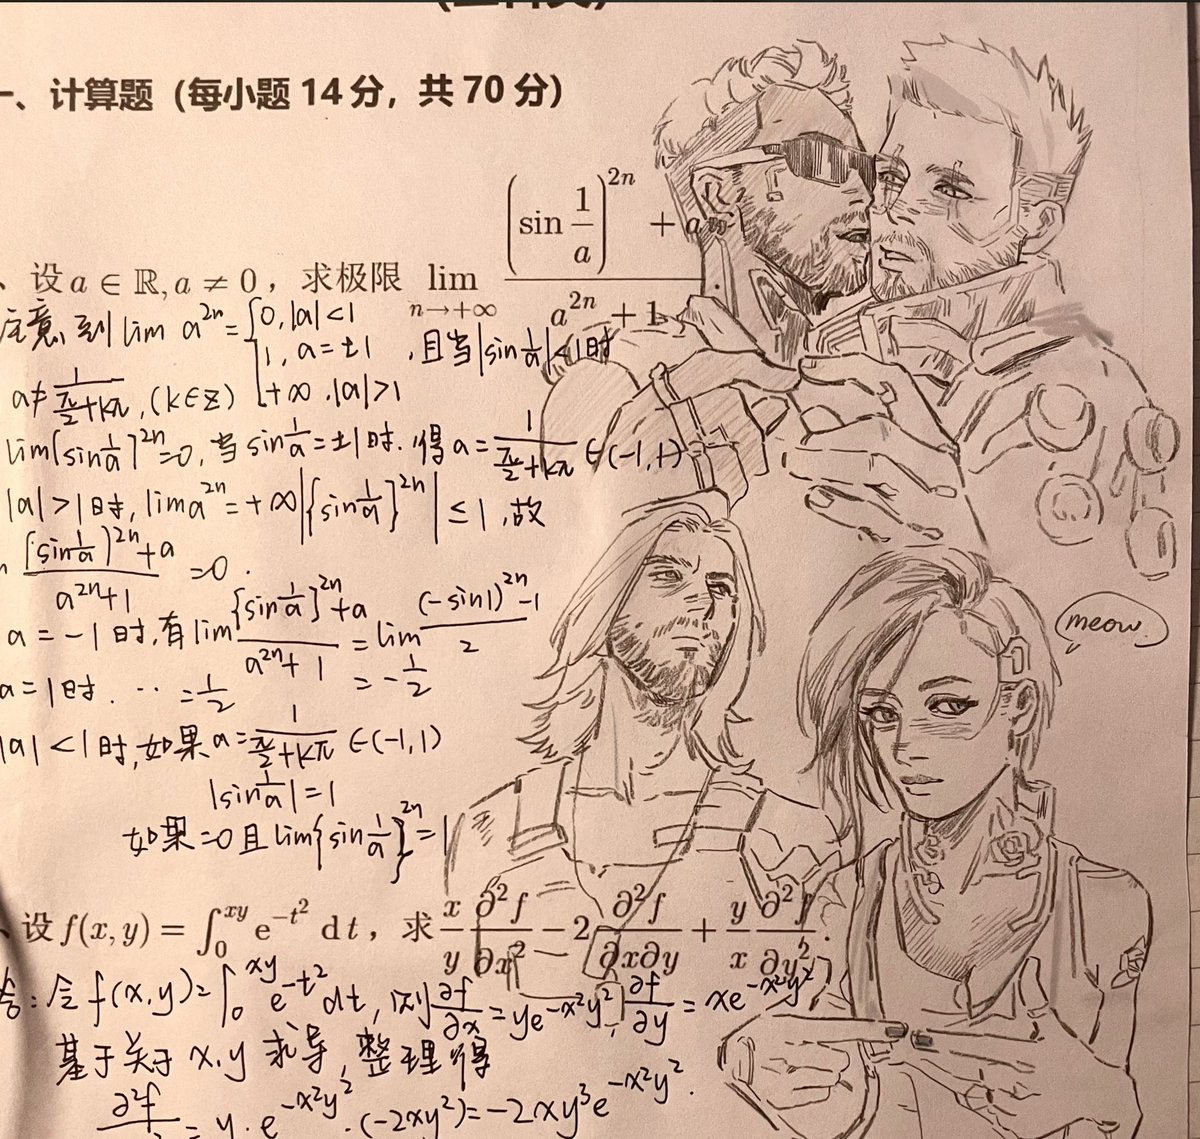 一、计算题（每小题 14 分，共 70 分）
、设 a ∈ ℝ, a ≠ 0，求极限 lim_{n→+∞} ((sin 1/a)^{2n} + a) / (a^{2n} + 1)
注意到 lim a^{2n} = { 0, |a|<1
1, a=±1 ，且当 |sin 1/a| < 1 时
+∞, |a|>1
a ≠ 1/(π/2+kπ), (k∈Z)
lim[sin 1/a]^{2n}=0, 当 sin 1/a = ±1 时. 得 a = 1/(π/2+kπ) ∈ (-1,1)
|a|>1 时, lim a^{2n} = +∞ |{sin 1/a}^{2n}| ≤ 1, 故
[sin 1/a]^{2n}+a / a^{2n}+1 =0.
a = -1 时, 有 lim {sin 1/a}^{2n}+a / a^{2n}+1 = lim (-sin1)^{2n}-1 / 2
= -1/2
a=1 时. ·· = 1/2
|a|<1 时, 如果 a = 1/(π/2+kπ) ∈ (-1,1)
|sin 1/a| = 1
如果 =0 且 lim{sin 1/a}^{2n} = 1
meow.
、设 f(x,y) = ∫_0^{xy} e^{-t²} dt，求 x/y ∂²f/∂x² − 2 ∂²f/∂x∂y + y/x ∂²f/∂y².
答: 令 f(x,y) = ∫_0^{xy} e^{-t²} dt, 则 ∂f/∂x = ye^{-x²y²}, ∂f/∂y = xe^{-x²y²}
基于关于 x,y 求导, 整理得
∂²f = y·e^{-x²y²}·(-2xy²) = -2xy³e^{-x²y²}.